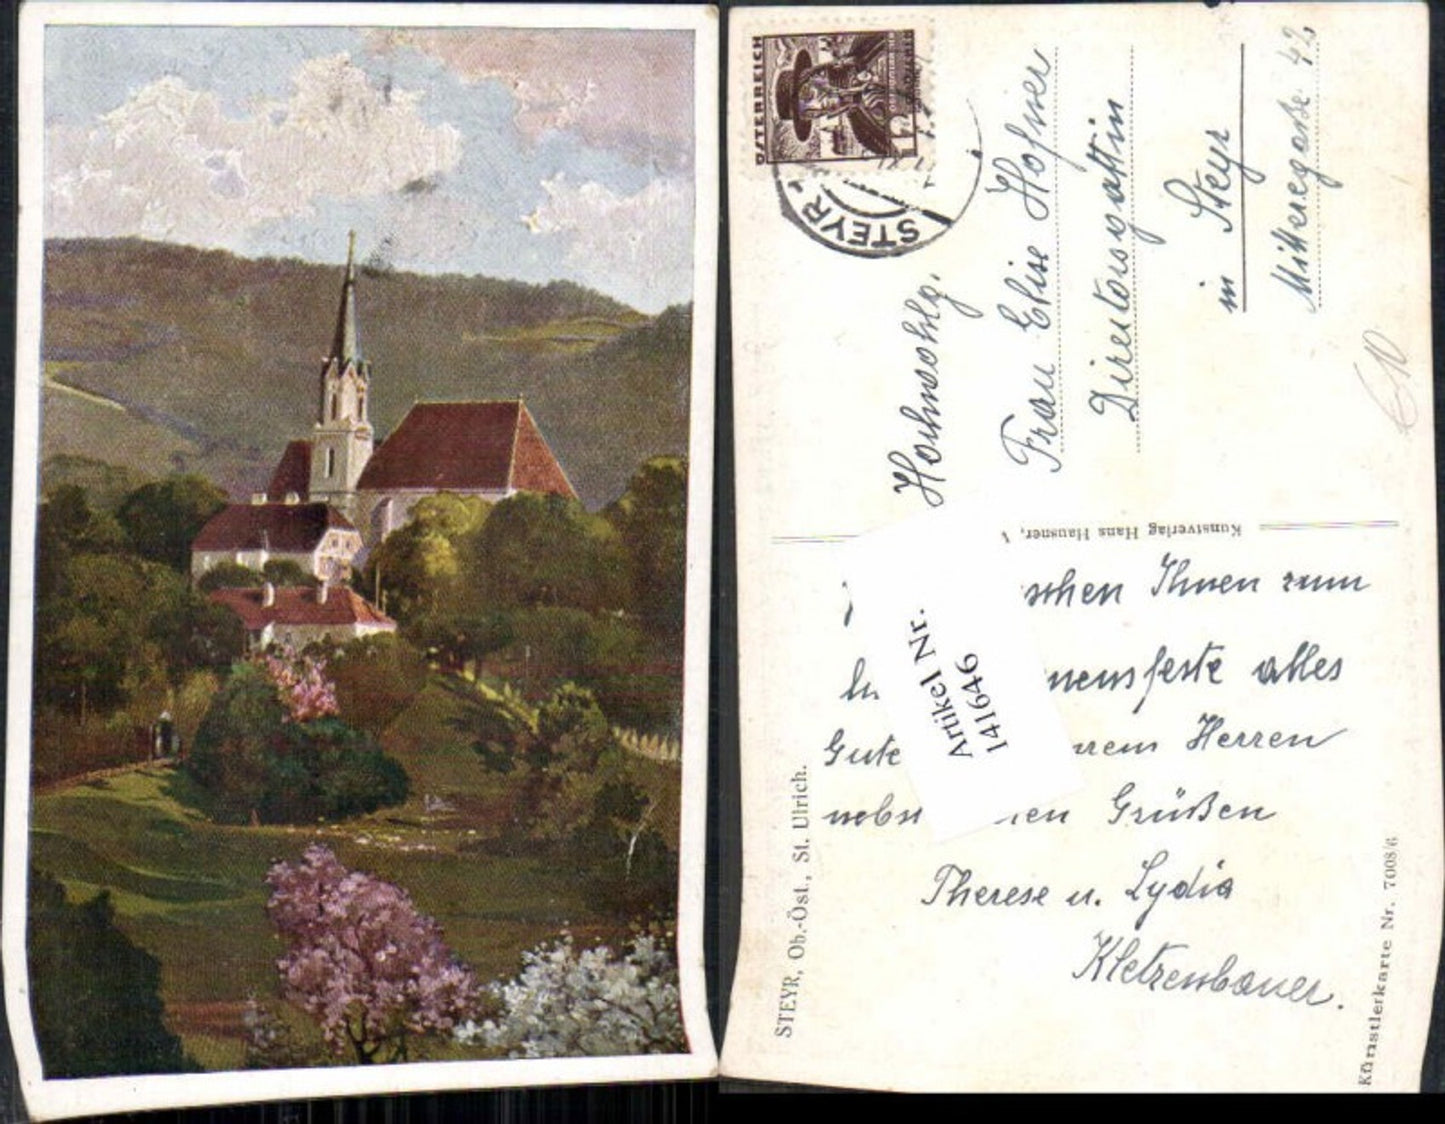 ÖSTERREICH
STEYR
Hochwohlg.
Frau Elise Hofner
Direktorsgattin
in Steyr
Mitteregasse 42
Kunstverlag Hans Hausner,
Artikel Nr.
141646
schen Ihnen zum
mensfeste alles
Gute rem Herren
nebst en Grüßen
Therese u. Lydia
Kletzenbauer.
STEYR, Ob.-Öst., St. Ulrich.
Künstlerkarte Nr. 7008/6